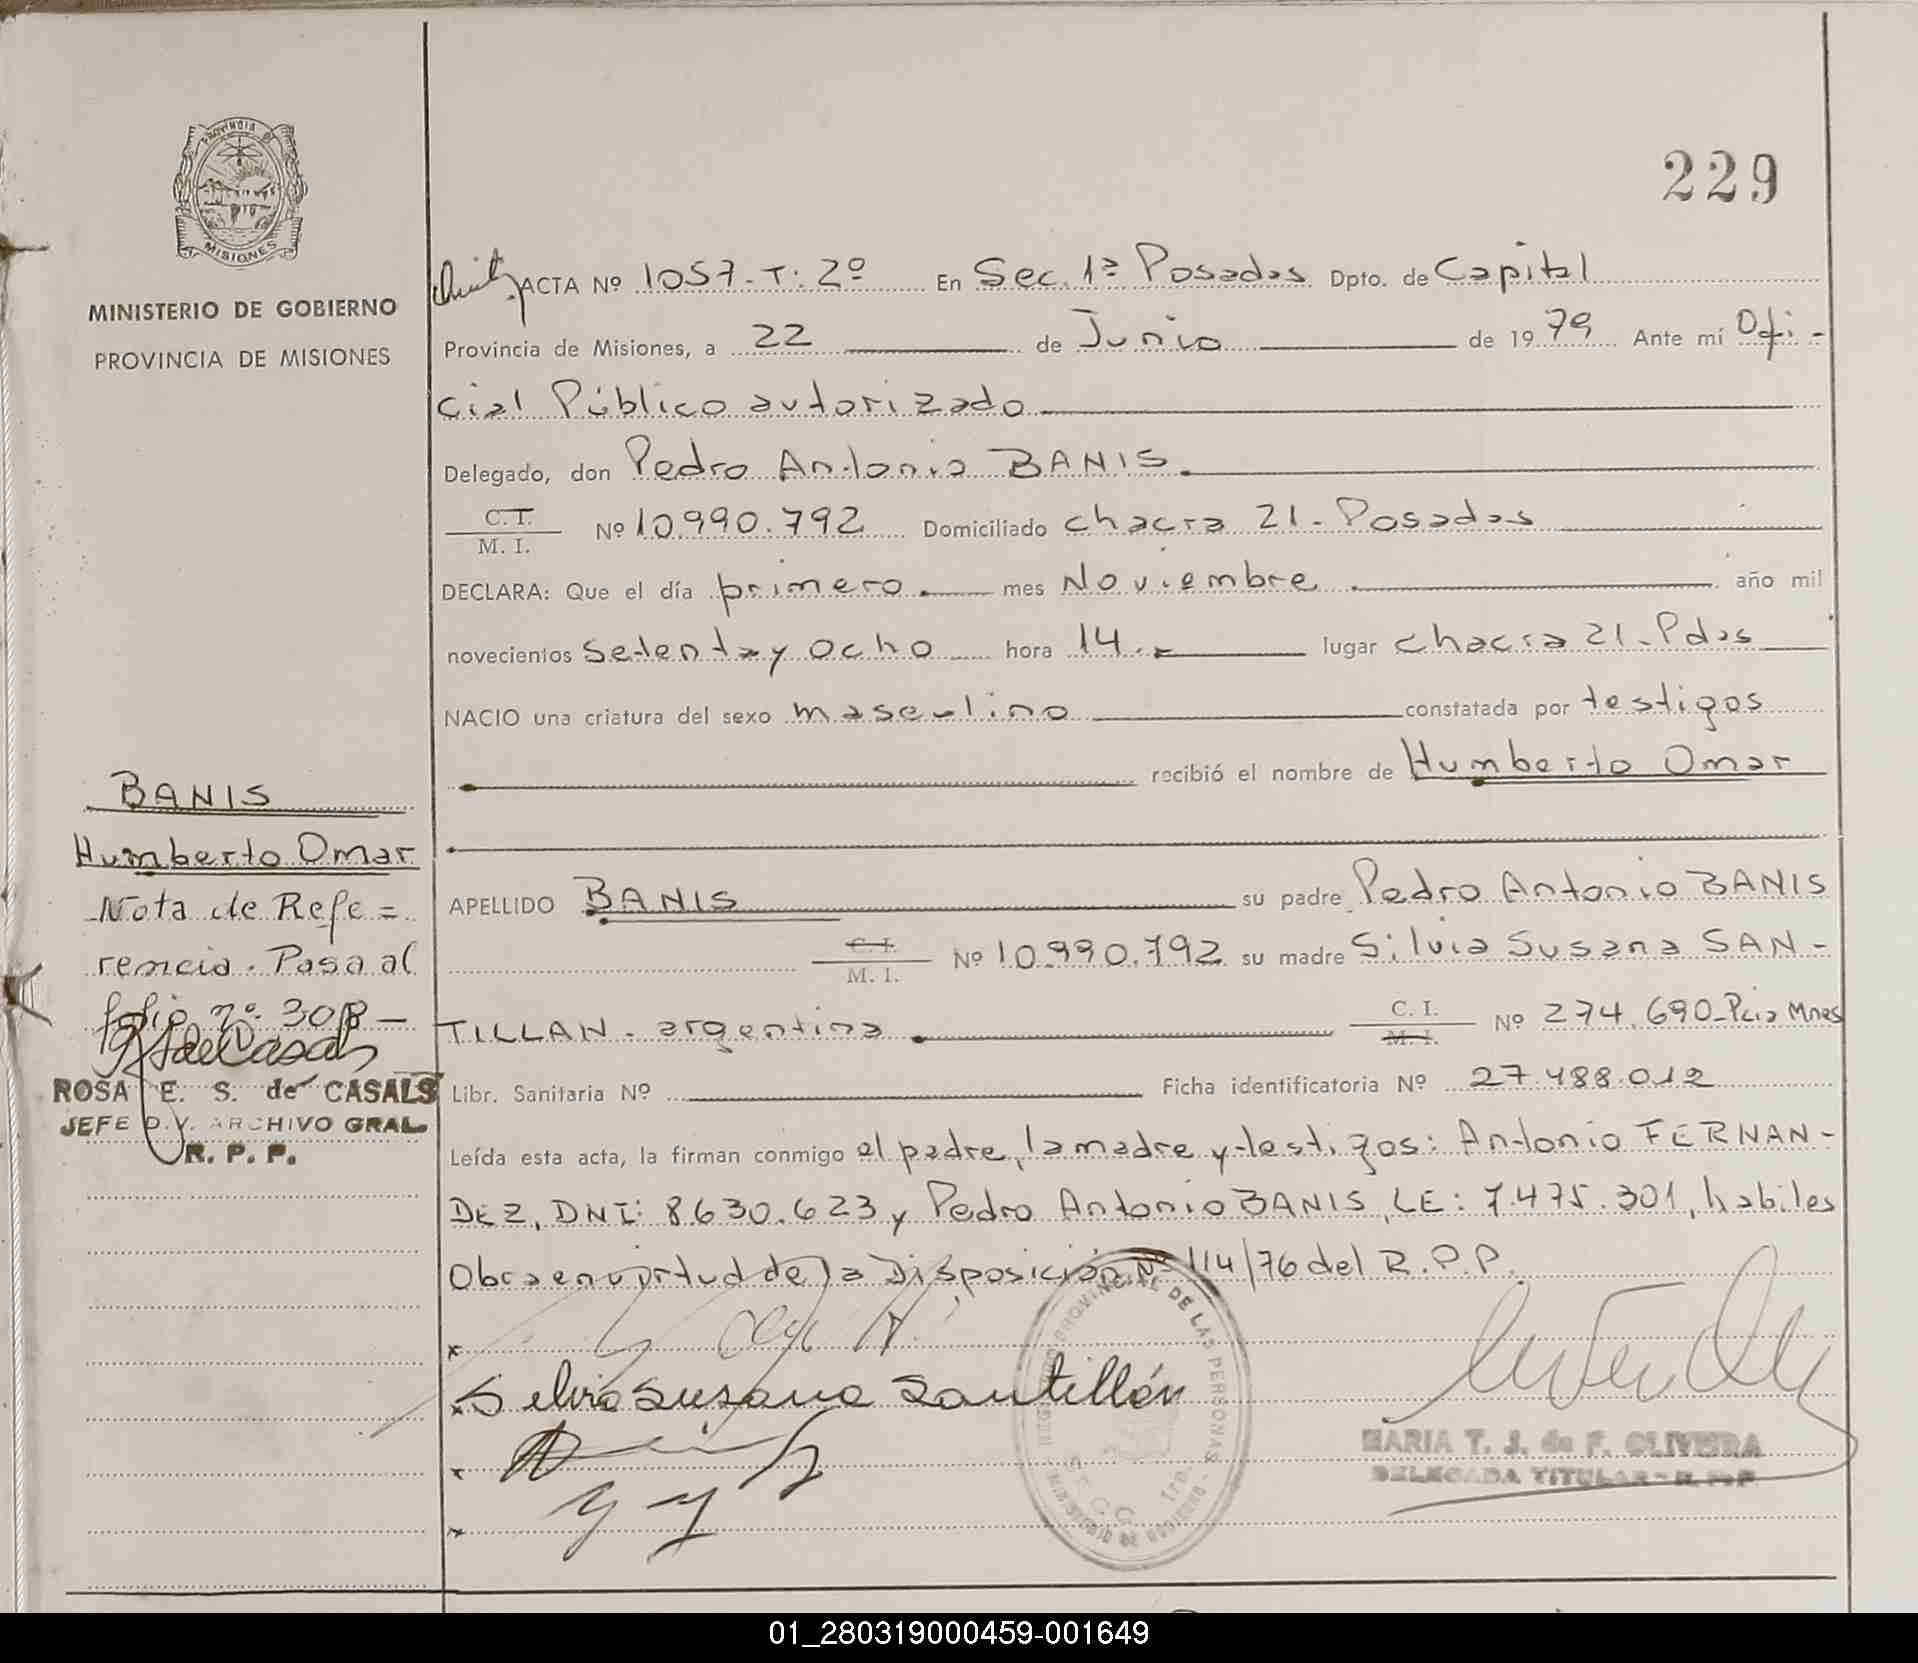 PROVINCIA DE
MISIONES
MINISTERIO DE GOBIERNO
PROVINCIA DE MISIONES
229
ACTA Nº 1057-T: 2º En Sec. 1ª Posadas Dpto. de Capital
Provincia de Misiones, a 22 de Junio de 1979 Ante mí Ofi-
cial Público autorizado
Delegado, don Pedro Antonio BANIS.
C. I.
M. I. Nº 10.990.792 Domiciliado chacra 21 - Posadas
DECLARA: Que el día primero mes Noviembre año mil
novecientos setenta y ocho hora 14.- lugar chacra 21 - Pdas
NACIO una criatura del sexo masculino constatada por testigos
recibió el nombre de Humberto Omar
APELLIDO BANIS su padre Pedro Antonio BANIS
C. I.
M. I. Nº 10.990.792 su madre Silvia Susana SAN-
TILLAN - argentina C. I.
M. I. Nº 274.690 - Pcia Mnes
Libr. Sanitaria Nº Ficha identificatoria Nº 27.488.012
Leída esta acta, la firman conmigo el padre, la madre y testigos: Antonio FERNAN-
DEZ, DNI: 8630.623 y Pedro Antonio BANIS, LE: 7.475.301, habiles
Obra en virtud de la Disposición Nº 114/76 del R.P.P.
Silvia Susana Santillán
REGISTRO PROVINCIAL DE LAS PERSONAS
SECC. 1ra.
MINISTERIO DE GOBIERNO
MARIA T. J. de F. OLIVEIRA
DELEGADA TITULAR - R. P. P.
BANIS
Humberto Omar
Nota de Refe=
rencia. Pasa al
folio nº 308-
ROSA E. S. de CASALS
JEFE DIV. ARCHIVO GRAL.
R. P. P.
01_280319000459-001649